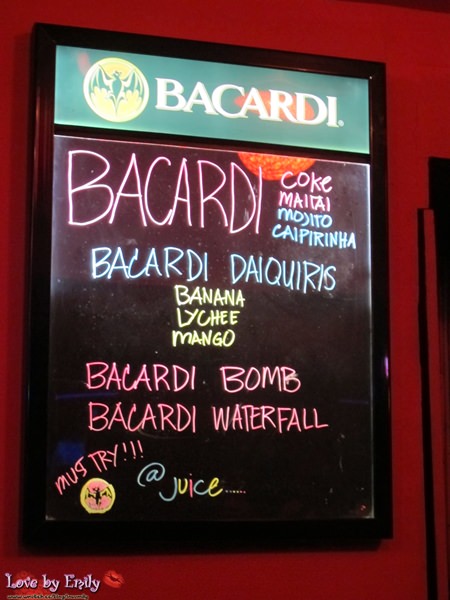 BACARDI
BACARDI
COKE
MAITAI
MOJITO
CAIPIRINHA
BACARDI DAIQUIRIS
BANANA
LYCHEE
MANGO
BACARDI BOMB
BACARDI WATERFALL
MUST TRY!!!
@juice......
Love by Emily